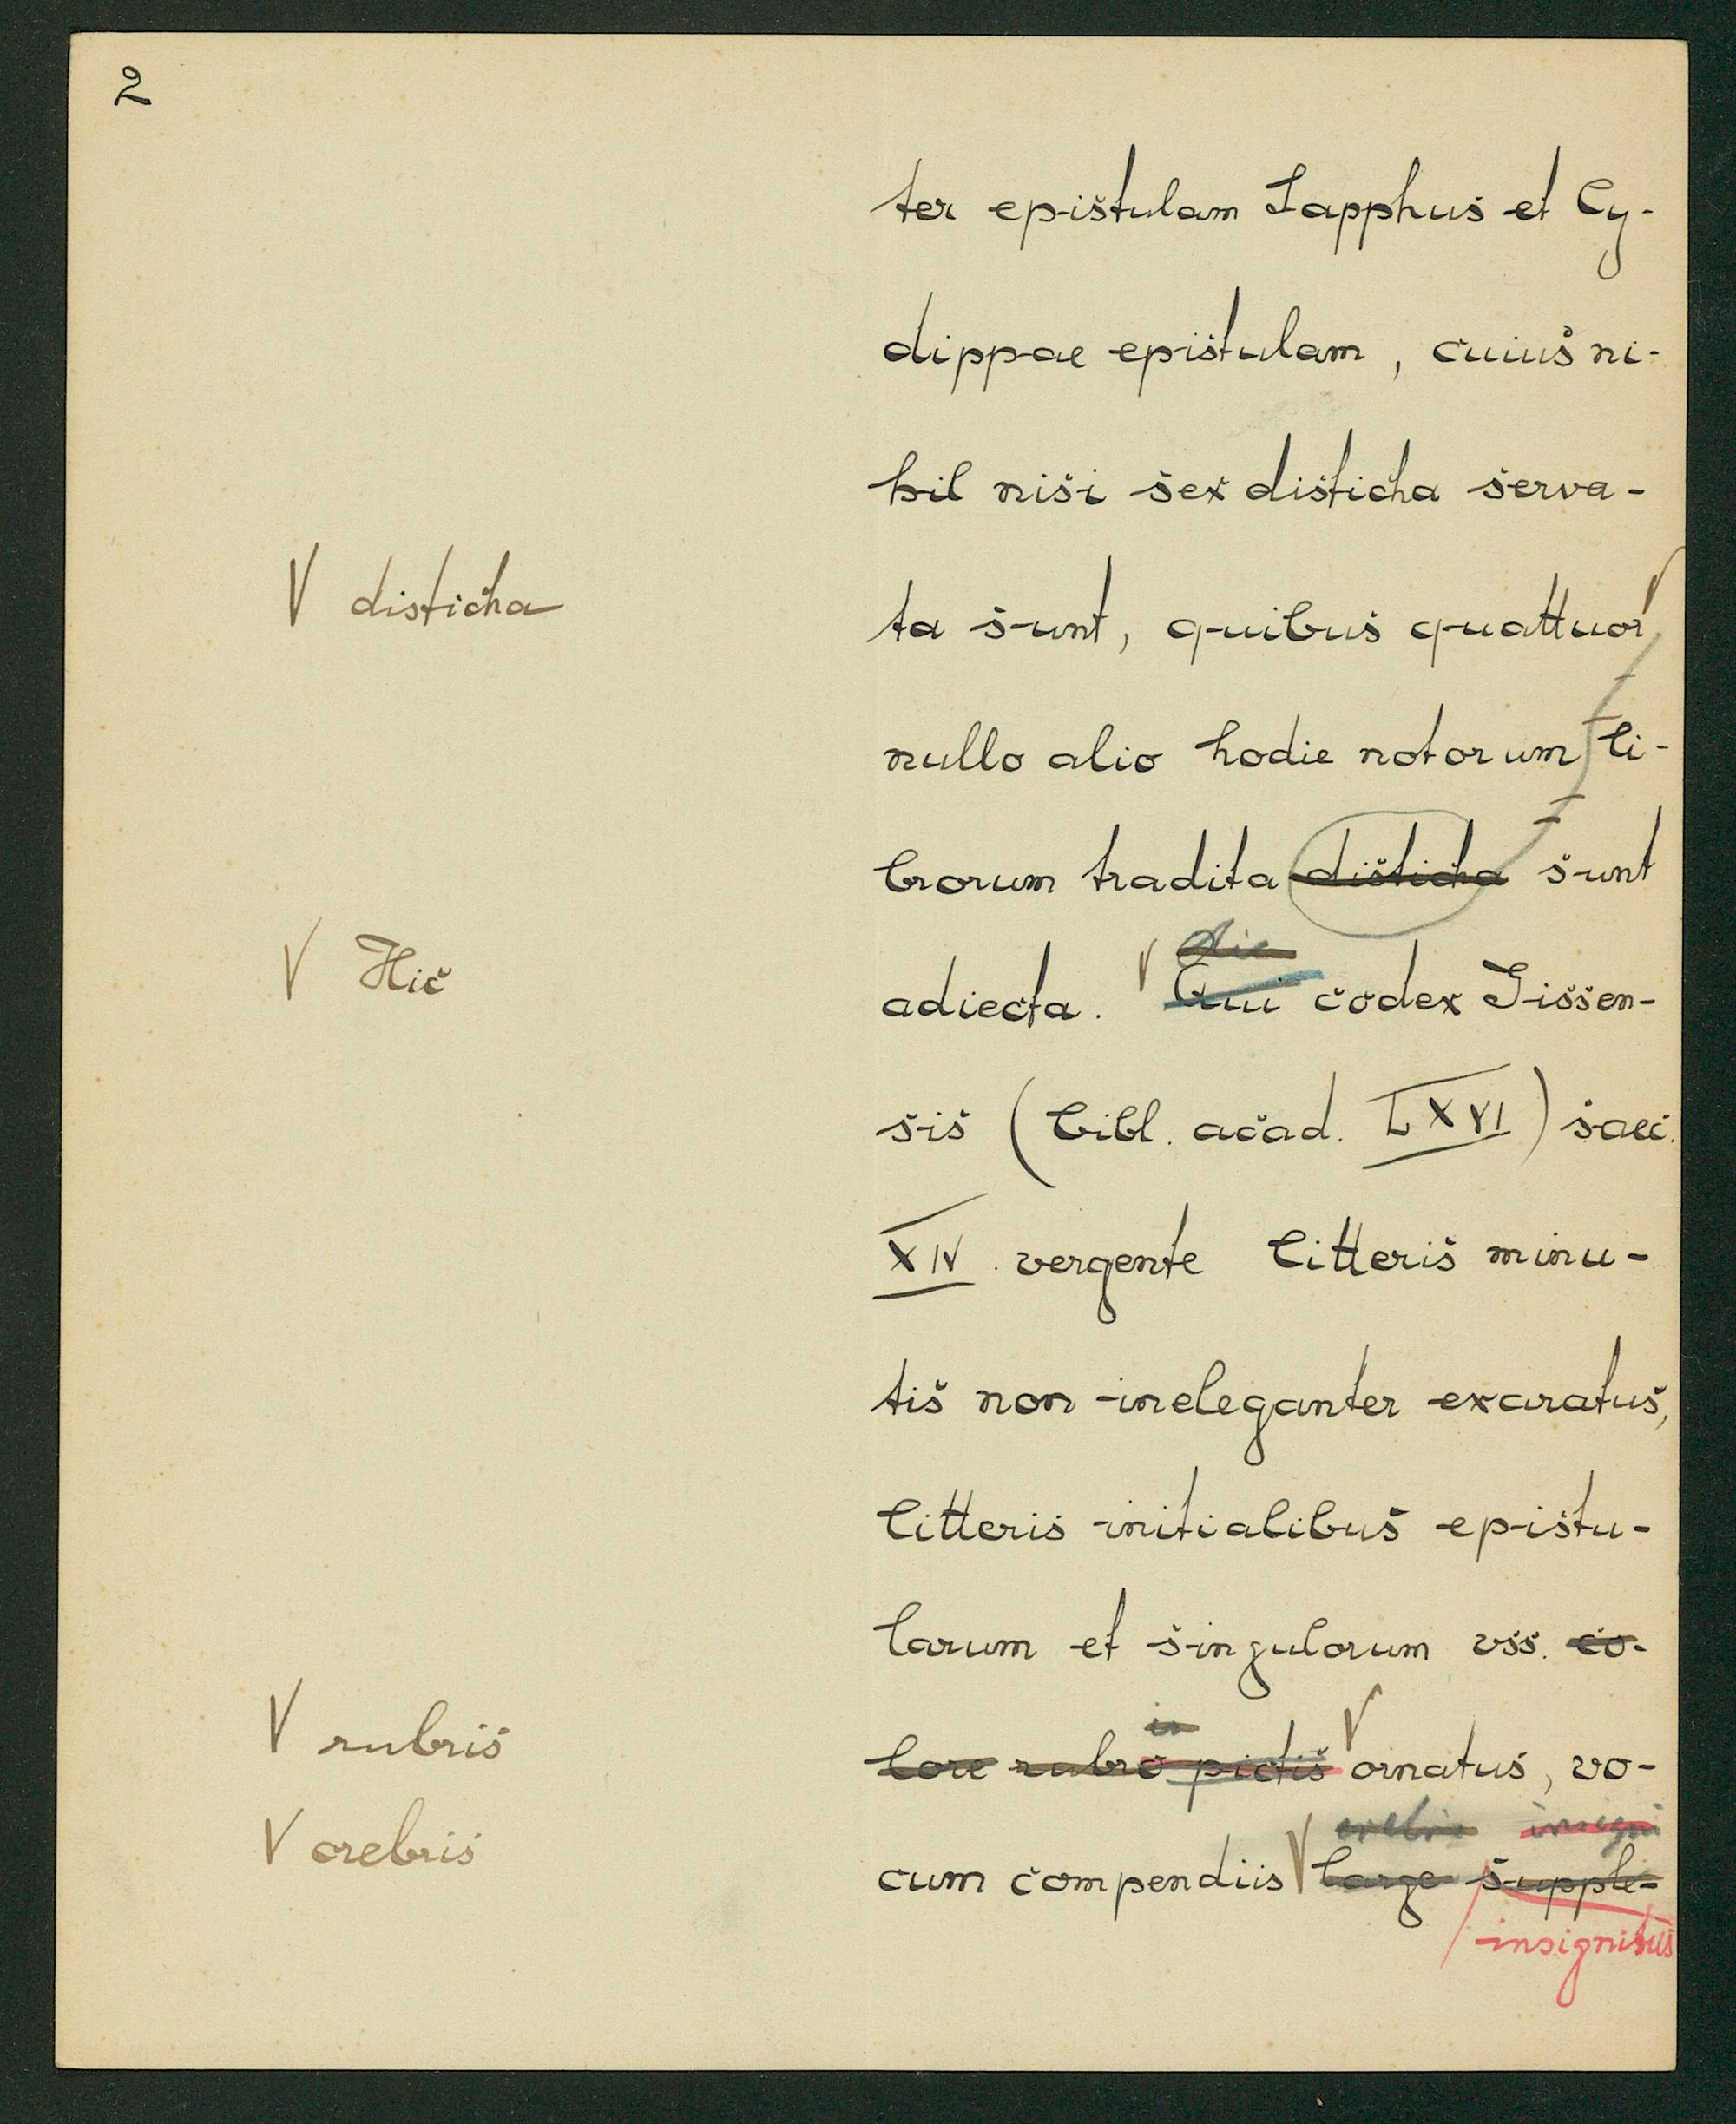 2
ter epistulam Sapphus et Cy-
dippae epistulam, cuius ni-
hil nisi sex disticha serva-
V disticha
ta sunt, quibus quattuor V
nullo alio hodie notorum li-
brorum tradita disticha sunt
V Hic
Hic
adiecta. V Qui codex Gissen-
sis (bibl. acad. LXVI) saec.
XIV. vergente litteris minu-
tis non ineleganter exaratus,
litteris initialibus epistu-
larum et singulorum vss. co-
V rubris
is
lore rubro pictis V ornatus, vo-
V crebris
crebris insigni
cum compendiis V large supple-
insignitus